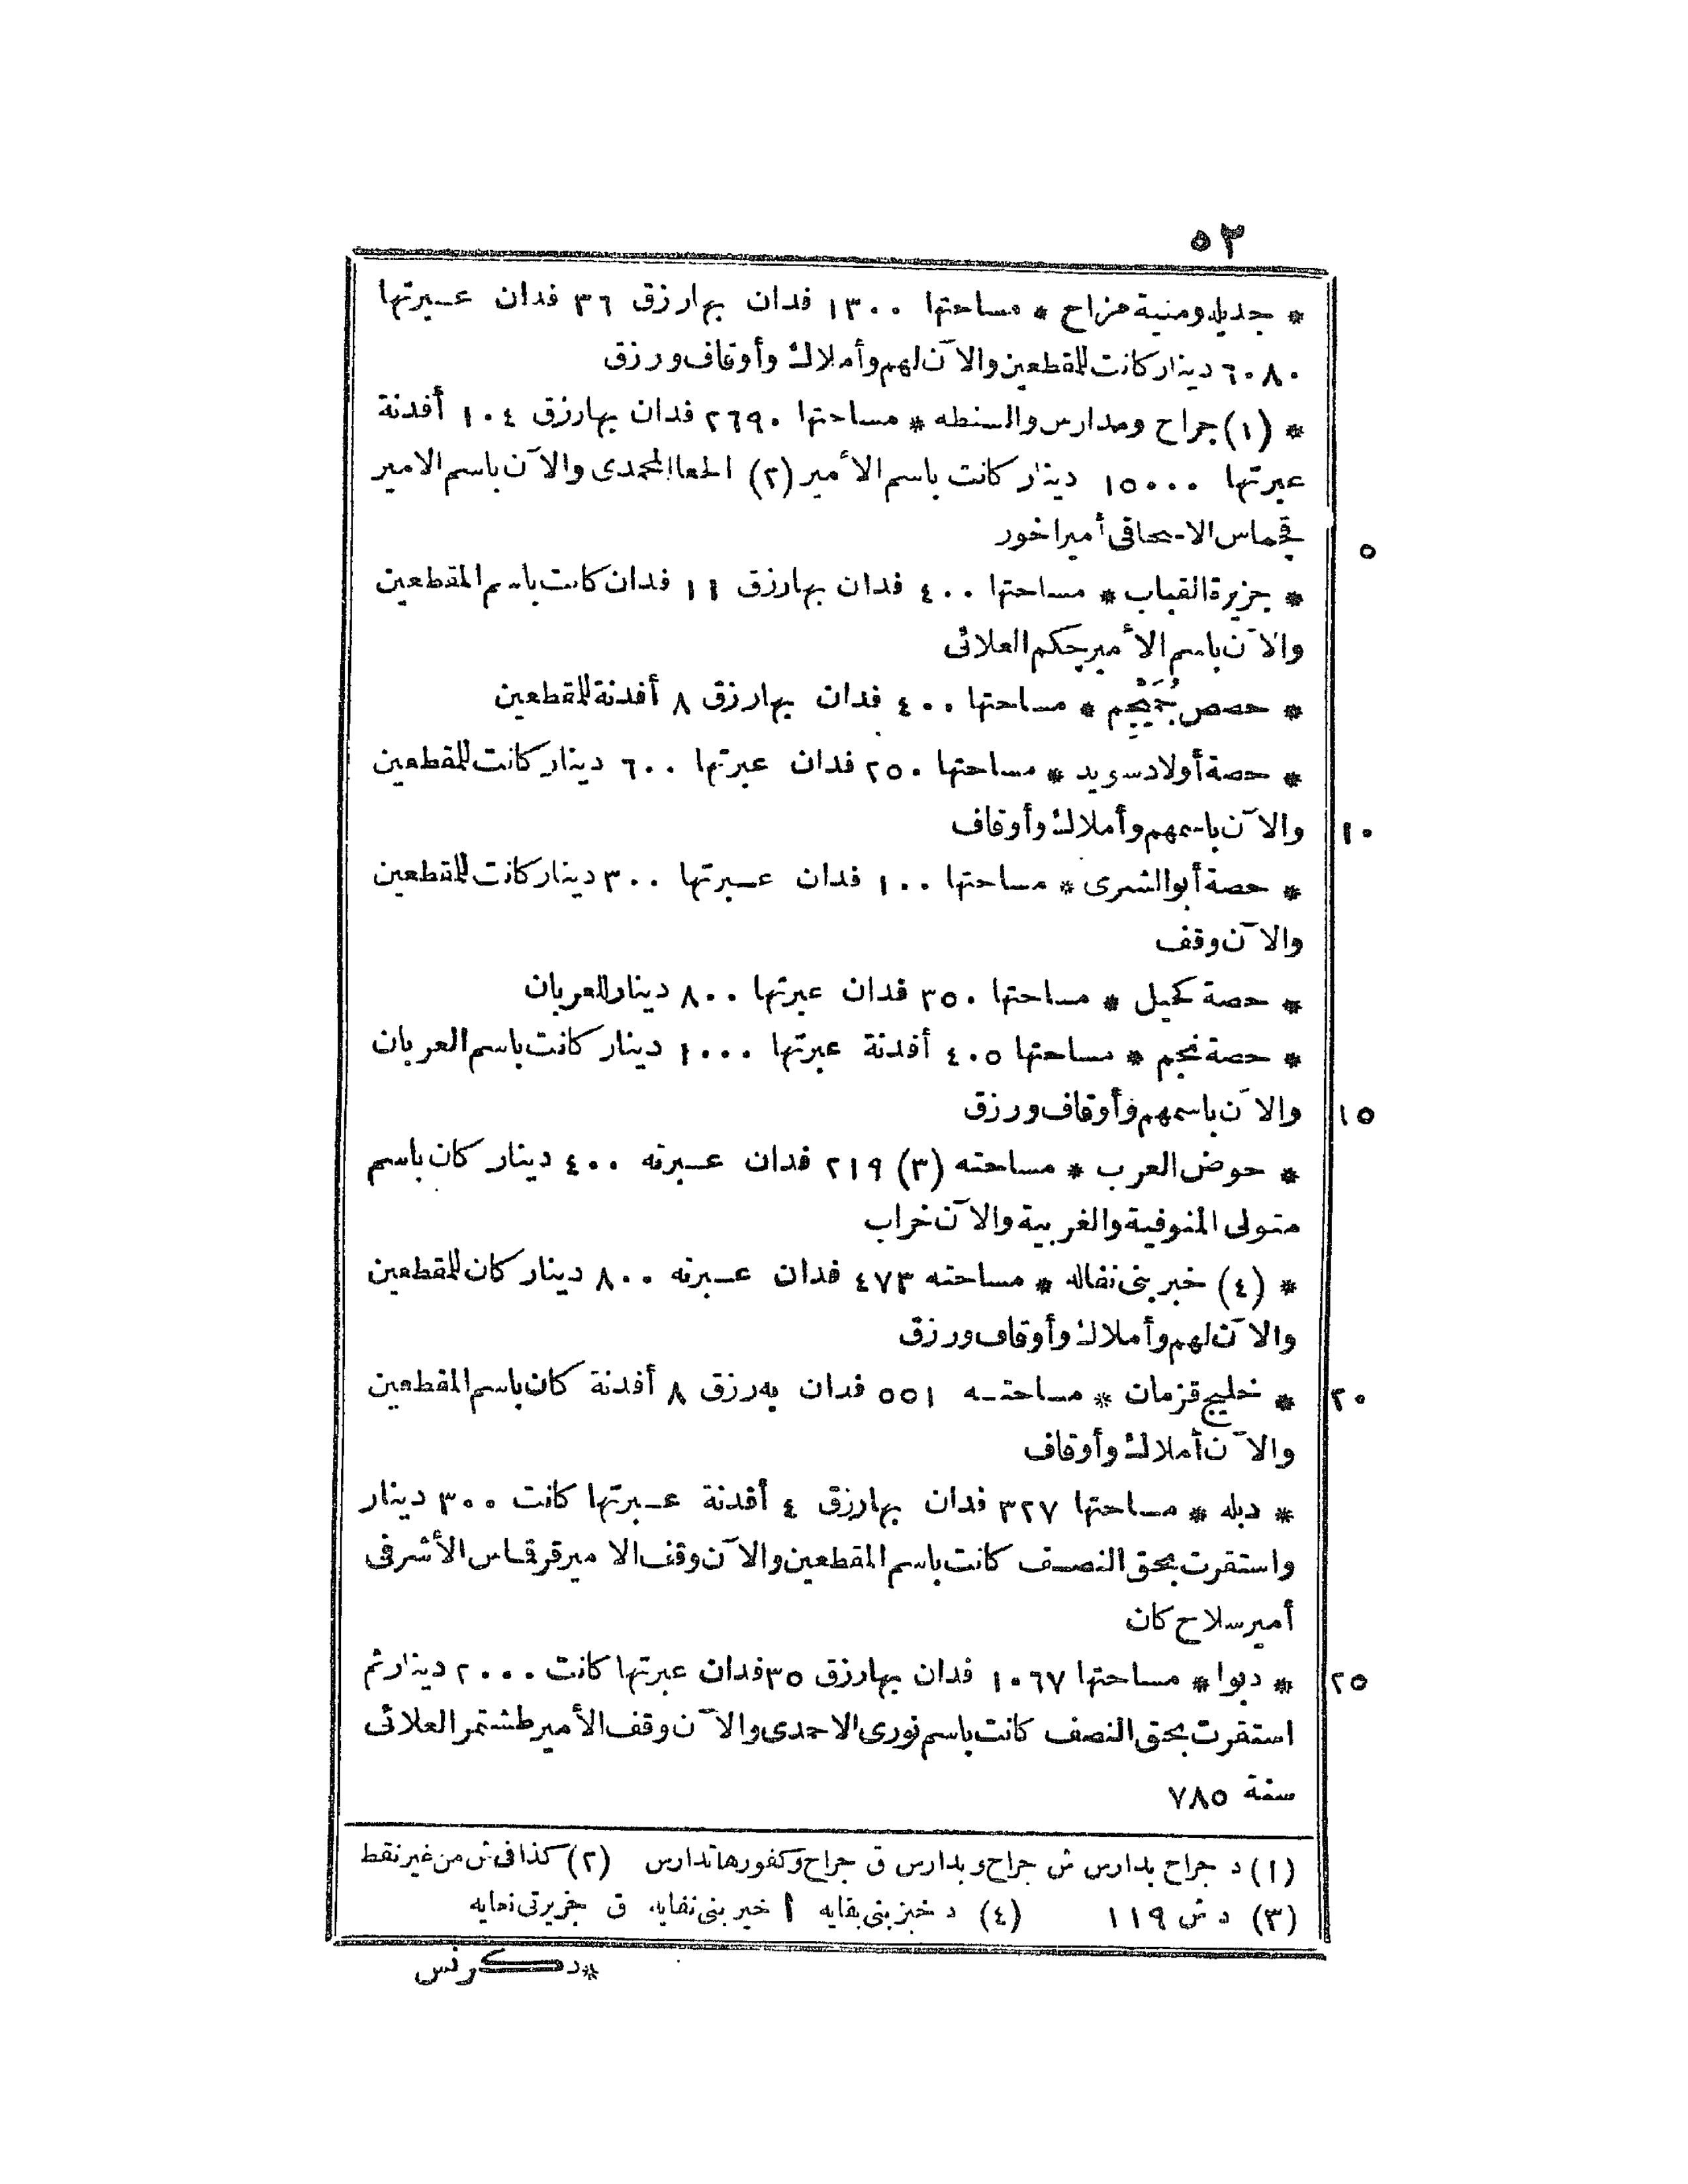 ٥٣
* جديله ومنية مزاح * مساحتها ١٣٠٠ فدان بها رزق ٣٦ فدان عبرتها
٦٠٨٠ دينار كانت للمقطعين والآن لهم وأملاك وأوقاف ورزق
* (١) جراح ومدارس والسنطه * مساحتها ٢٦٩٠ فدان بها رزق ١٠٤ أفدنة
عبرتها ١٥٠٠٠ دينار كانت باسم الأمير (٢) الحعا المحمدى والآن باسم الامير
٥ قجماس الاسحاقى أميراخور
* جزيرة القباب * مساحتها ٤٠٠ فدان بها رزق ١١ فدان كانت باسم المقطعين
والآن باسم الأمير جكم العلائى
* حصص جُمَيْجِم * مساحتها ٤٠٠ فدان بها رزق ٨ أفدنة للمقطعين
* حصة أولاد سويد * مساحتها ٢٥٠ فدان عبرتها ٦٠٠ دينار كانت للمقطعين
١٠ والآن باسمهم وأملاك وأوقاف
* حصة أبو الشرى * مساحتها ١٠٠ فدان عبرتها ٣٠٠ دينار كانت للمقطعين
والآن وقف
* حصة كحيل * مساحتها ٣٥٠ فدان عبرتها ٨٠٠ دينار للعربان
* حصة نجم * مساحتها ٤٠٥ أفدنة عبرتها ١٠٠٠ دينار كانت باسم العربان
١٥ والآن باسمهم وأوقاف ورزق
* حوض العرب * مساحته (٣) ٢١٩ فدان عبرته ٤٠٠ دينار كان باسم
متولى المنوفية والغربية والآن خراب
* (٤) خبر بنى نفاله * مساحته ٤٧٣ فدان عبرته ٨٠٠ دينار كان للمقطعين
والآن لهم وأملاك وأوقاف ورزق
٢٠ * خليج قزمان * مساحته ٥٥١ فدان به رزق ٨ أفدنة كان باسم المقطعين
والآن أملاك وأوقاف
* دبله * مساحتها ٣٢٧ فدان بها رزق ٤ أفدنة عبرتها كانت ٣٠٠ دينار
واستقرت بحق النصف كانت باسم المقطعين والآن وقف الامير قرقماس الأشرفى
أمير سلاح كان
٢٥ * دبوا * مساحتها ١٠٦٧ فدان بها رزق ٣٥ فدان عبرتها كانت ٢٠٠٠ دينار ثم
استقرت بحق النصف كانت باسم نورى الاحمدى والآن وقف الأمير طشتمر العلائى
سنة ٧٨٥
(١) د جراح بدارس ش جراح وبدارس ق جراح وكفورها تدارس (٢) كذا فى ش من غير نقط
(٣) د ش ١١٩ (٤) د خبز بنى بقايه أ خير بنى نفايه ق
* دكرنس